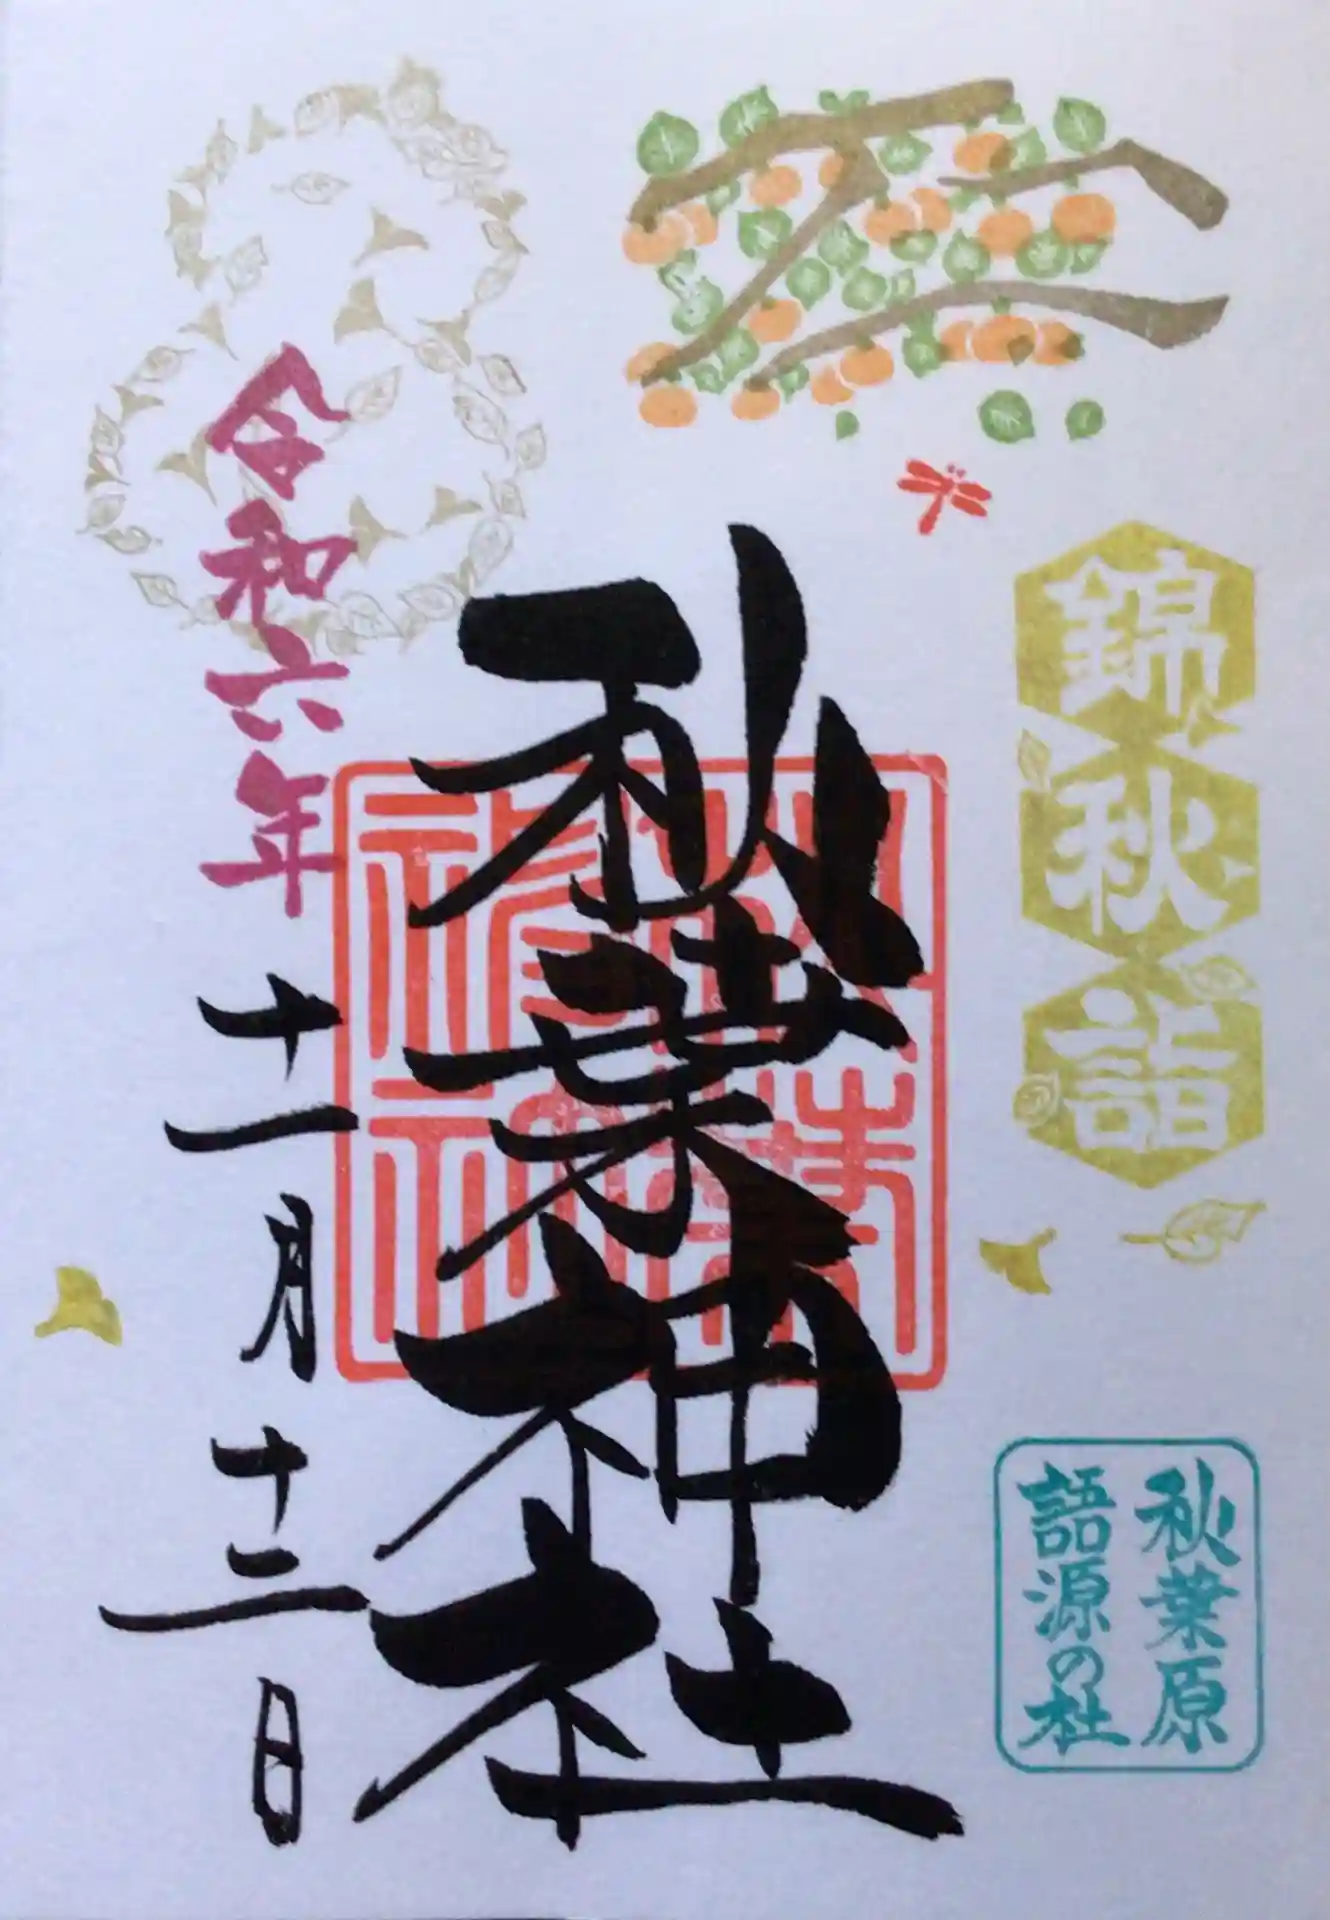 錦秋詣
秋葉原
語源の杜
秋葉神社
令和六年
十一月十二日